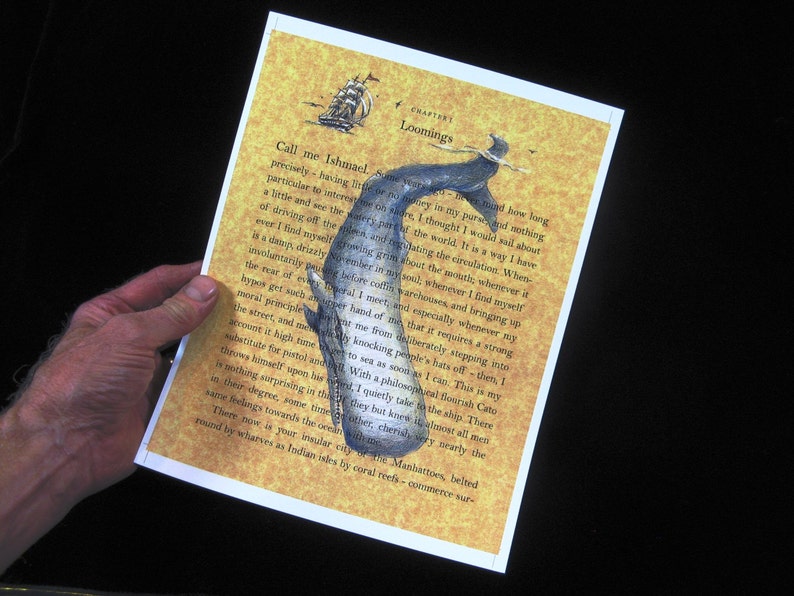 CHAPTER 1
Loomings
Call me Ishmael. Some years ago - never mind how long
precisely - having little or no money in my purse, and nothing
particular to interest me on shore, I thought I would sail about
a little and see the watery part of the world. It is a way I have
of driving off the spleen, and regulating the circulation. When-
ever I find myself growing grim about the mouth; whenever it
is a damp, drizzly November in my soul; whenever I find myself
involuntarily pausing before coffin warehouses, and bringing up
the rear of every funeral I meet; and especially whenever my
hypos get such an upper hand of me, that it requires a strong
moral principle to prevent me from deliberately stepping into
the street, and methodically knocking people's hats off - then, I
account it high time to get to sea as soon as I can. This is my
substitute for pistol and ball. With a philosophical flourish Cato
throws himself upon his sword, I quietly take to the ship. There
is nothing surprising in this. If they but knew it, almost all men
in their degree, some time or other, cherish very nearly the
same feelings towards the ocean with me.
There now is your insular city of the Manhattoes, belted
round by wharves as Indian isles by coral reefs - commerce sur-